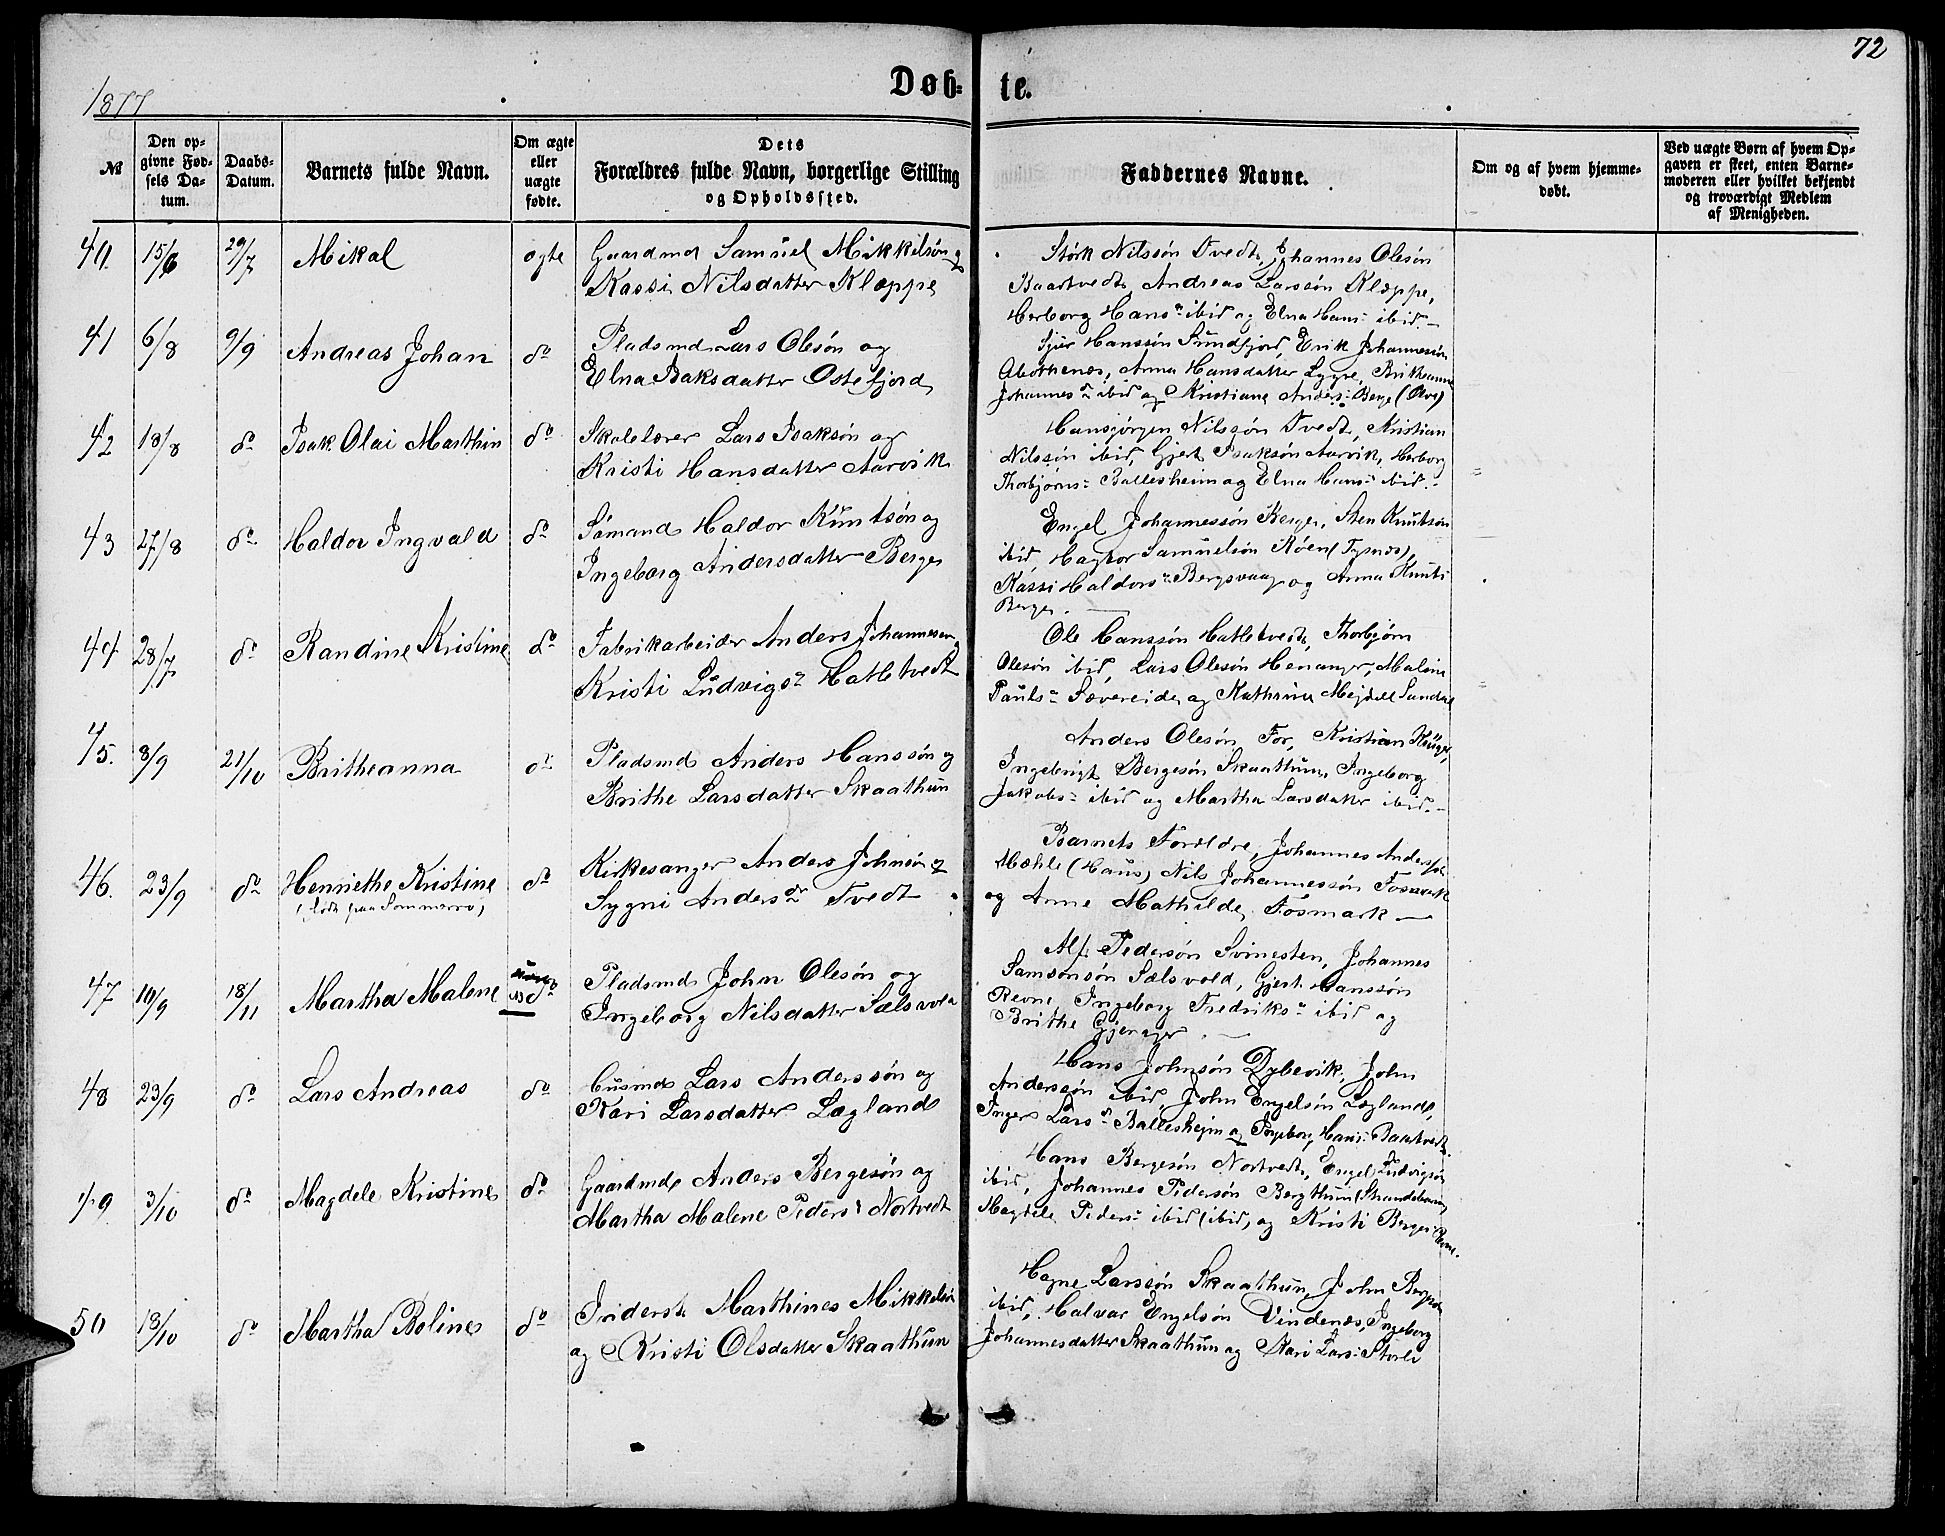 72
1877
Døb- te.
№
Den op-
givne Fød-
sels Da-
tum.
Daabs-
Datum.
Barnets fulde Navn.
Om ægte
eller
uægte
fødte.
Dets
Forældres fulde Navn, borgerlige Stilling
og Opholdssted.
Faddernes Navne.
Om og af hvem hjemme-
døbt.
Ved uægte Børn af hvem Op-
gaven er skeet, enten Barne-
moderen eller hvilket bekjendt
og troværdigt Medlem
af Menigheden.
40. 15/6 29/7 Mikal ægte Gaardmd Samuel Mikkelsøn og
Kassi Nilsdatter Klæppe
Størk Nilssøn Tvedt, Johannes Olesøn
Baartvedt, Andreas Larssøn Klæppe,
Herborg Hans ibid og Elna Hans ibid.
41 6/8 9/9 Andreas Johan do Pladsmd Lars Olesøn og
Elna Baksdatter Ostefjord
Sjur Hanssøn Sundfjord, Erik Johannessøn
Anna Hansdatter Lygre, Britheanna
Johannes ibid og Kristiane Anders Berge (Ølve)
42 18/8 do Isak Olai Marthin do Skolelærer Lars Isaksøn og
Kristi Hansdatter Aarvik
Hansjørgen Nilssøn Tvedt, Kristian
Nilssøn ibid, Gjert Isaksøn Aarvik, Herborg
Thorbjørns Ballesheim og Elna Hans ibid.
43 27/8 do Haldor Ingvald do Sømand Haldor Knutsøn og
Ingeborg Andersdatter Berge
Engel Johannessøn Berge, Sten Knutsøn
ibid, Hagtor Samuelsøn Røen (Tysnes),
Kassi Haldors Bergsvaag og Anna Knuts
Berge.
44. 28/7 do Randine Kristine do Fabrikarbeider Anders Johannesen og
Kristi Ludvigs Hatletvedt
Ole Hanssøn Hatletvedt, Thorbjørn
Olesøn ibid, Lars Olesøn Henanger, Malene
Pauls Sævereide og Kathrine Mejdell Sundal
45. 8/9 21/10 Britheanna do Pladsmd Anders Hanssøn og
Brithe Larsdatter Skaathun
Anders Olesøn For, Kristian
Ingebrigt Bergesøn Skaathun, Ingeborg
Jakobs ibid og Martha Larsdatter ibid.
46. 23/9 do Henriethe Kristine do Kirkesanger Anders Johnsøn og
(født paa Sommerro) Sygni Anders Tvedt
Barnets Forældre, Johannes Anderssøn
Mæhle (Haus) Nils Johannessøn Fosmark
og Anne Mathilde Fosmark
47 10/9 18/11 Martha Malene do Pladsmd John Olesøn og
Ingeborg Nilsdatter Sælsvold
Alf Pedersøn Svinesten, Johannes
Samsonsøn Sælsvold, Gjert Hanssøn
Revne, Ingeborg Fredriks ibid og
Brithe Gjerager.
48 23/9 do Lars Andreas do Husmd Lars Anderssøn og
Kari Larsdatter Lægland
Hans Johnsøn Dybevik, John
Anderssøn ibid, John Engelsøn Lægland,
Inger Lars Ballesheim og Ingeborg Hans Baatvedt.
49 3/10 do Magdele Kristine do Gaardmd Anders Bergesøn og
Martha Malene Peders Nortvedt
Hans Bergesøn Nortvedt, Engel Ludvigsøn
ibid, Johannes Pedersøn Bergthun (Strandebarm)
Magdele Peders ibid (ibid) og Kristi Berges Revne.
50 13/10 do Martha Boline do Inderst Marthines Mikkelsøn
og Kristi Olsdatter Skaathun
Hagne Larssøn Skaathun, John Bergesøn
ibid, Halvar Engelsøn Vindenæs, Ingeborg
Johannesdatter Skaathun og Kari Lars Storli